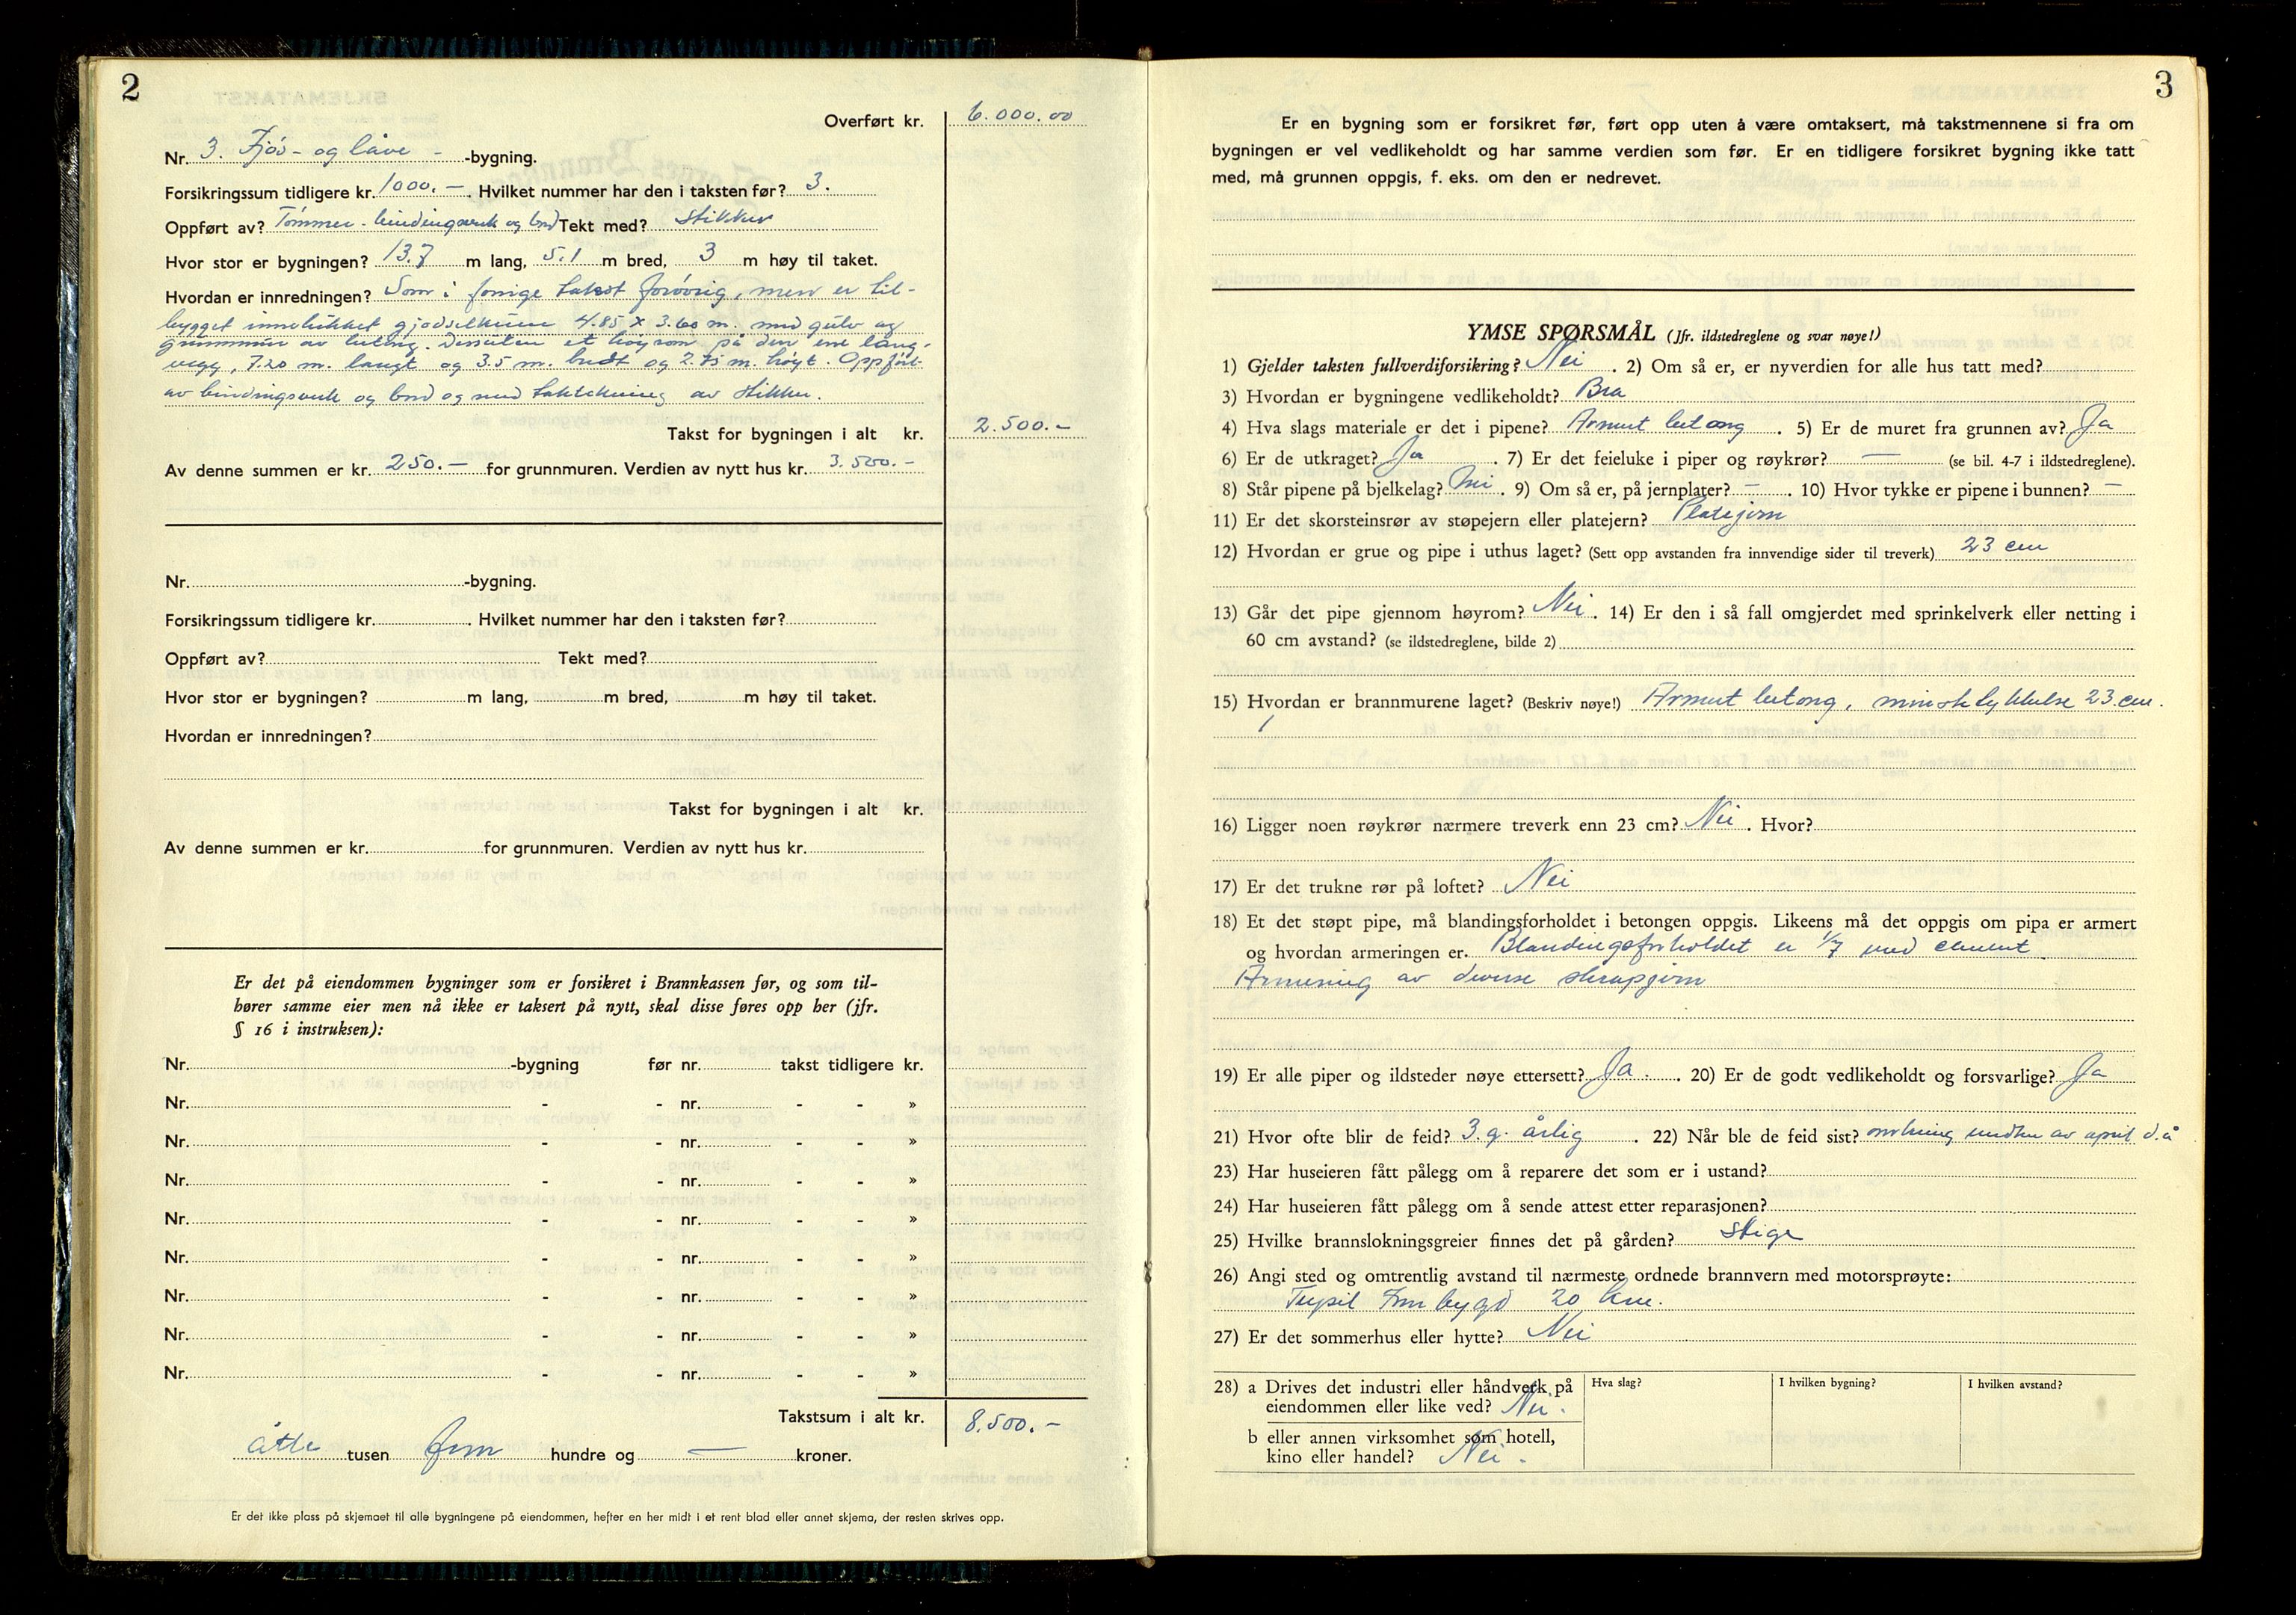 2
Overført kr. 6.000.00
Nr. 3. Fjøs- og låve - -bygning.
Forsikringssum tidligere kr. 1000.- . Hvilket nummer har den i taksten før? 3.
Oppført av? Tømmer. bindingsverk og bord Tekt med? stikker
Hvor stor er bygningen? 13.7 m lang, 5.1 m bred, 3 m høy til taket.
Hvordan er innredningen? Som i forrige takst forøvrig, men er til-
bygget innelukket gjødselkum 4.85 x 3.60 m. med gulv og
grunnmur av betong. Dessuten et høyrom på den ene lang-
vegg, 7.20 m. langt og 3.5 m. bredt og 2.75 m. høyt. Oppført
av bindingsverk og bord og med taktekning av stikker.
Takst for bygningen i alt kr. 2.500.-
Av denne summen er kr. 250.- for grunnmuren. Verdien av nytt hus kr. 3.500.-
Nr. -bygning.
Forsikringssum tidligere kr. . Hvilket nummer har den i taksten før?
Oppført av? Tekt med?
Hvor stor er bygningen? m lang, m bred, m høy til taket.
Hvordan er innredningen?
Takst for bygningen i alt kr.
Av denne summen er kr. for grunnmuren. Verdien av nytt hus kr.
Er det på eiendommen bygninger som er forsikret i Brannkassen før, og som til-
hører samme eier men nå ikke er taksert på nytt, skal disse føres opp her (jfr.
§ 16 i instruksen):
Nr. -bygning før nr. takst tidligere kr.
Nr. - - nr. - - »
Nr. - - nr. - - »
Nr. - - nr. - - »
Nr. - - nr. - - »
Nr. - - nr. - - »
Nr. - - nr. - - »
Nr. - - nr. - - »
Nr. - - nr. - - »
Takstsum i alt kr. 8.500.-
åtte tusen fem hundre og — kroner.
Er det ikke plass på skjemaet til alle bygningene på eiendommen, hefter en her midt i et rent blad eller annet skjema, der resten skrives opp.
3
Er en bygning som er forsikret før, ført opp uten å være omtaksert, må takstmennene si fra om
bygningen er vel vedlikeholdt og har samme verdien som før. Er en tidligere forsikret bygning ikke tatt
med, må grunnen oppgis, f. eks. om den er nedrevet.
YMSE SPØRSMÅL (Jfr. ildstedreglene og svar nøye!)
1) Gjelder taksten fullverdiforsikring? Nei . 2) Om så er, er nyverdien for alle hus tatt med?
3) Hvordan er bygningene vedlikeholdt? Bra
4) Hva slags materiale er det i pipene? Armert betong . 5) Er de muret fra grunnen av? Ja
6) Er de utkraget? Ja . 7) Er det feieluke i piper og røykrør? — (se bil. 4-7 i ildstedreglene).
8) Står pipene på bjelkelag? Nei . 9) Om så er, på jernplater? - . 10) Hvor tykke er pipene i bunnen? —
11) Er det skorsteinsrør av støpejern eller platejern? Platejern
12) Hvordan er grue og pipe i uthus laget? (Sett opp avstanden fra innvendige sider til treverk) 23 cm
13) Går det pipe gjennom høyrom? Nei . 14) Er den i så fall omgjerdet med sprinkelverk eller netting i
60 cm avstand? (se ildstedreglene, bilde 2)
15) Hvordan er brannmurene laget? (Beskriv nøye!) Armert betong, minste tykkelse 23 cm.
16) Ligger noen røykrør nærmere treverk enn 23 cm? Nei . Hvor?
17) Er det trukne rør på loftet? Nei
18) Et det støpt pipe, må blandingsforholdet i betongen oppgis. Likeens må det oppgis om pipa er armert
og hvordan armeringen er. Blandingsforholdet er 1/7 med cement.
Armering av diverse skrapjern
19) Er alle piper og ildsteder nøye ettersett? Ja . 20) Er de godt vedlikeholdt og forsvarlige? Ja
21) Hvor ofte blir de feid? 3. g. årlig . 22) Når ble de feid sist? omkring midten av april d.å
23) Har huseieren fått pålegg om å reparere det som er i ustand?
24) Har huseieren fått pålegg om å sende attest etter reparasjonen?
25) Hvilke brannslokningsgreier finnes det på gården? Stige
26) Angi sted og omtrentlig avstand til nærmeste ordnede brannvern med motorsprøyte:
Trysil Innbygd 20 km.
27) Er det sommerhus eller hytte? Nei
28) a Drives det industri eller håndverk på Hva slag? I hvilken bygning? I hvilken avstand?
eiendommen eller like ved? Nei.
b eller annen virksomhet som hotell,
kino eller handel? Nei.